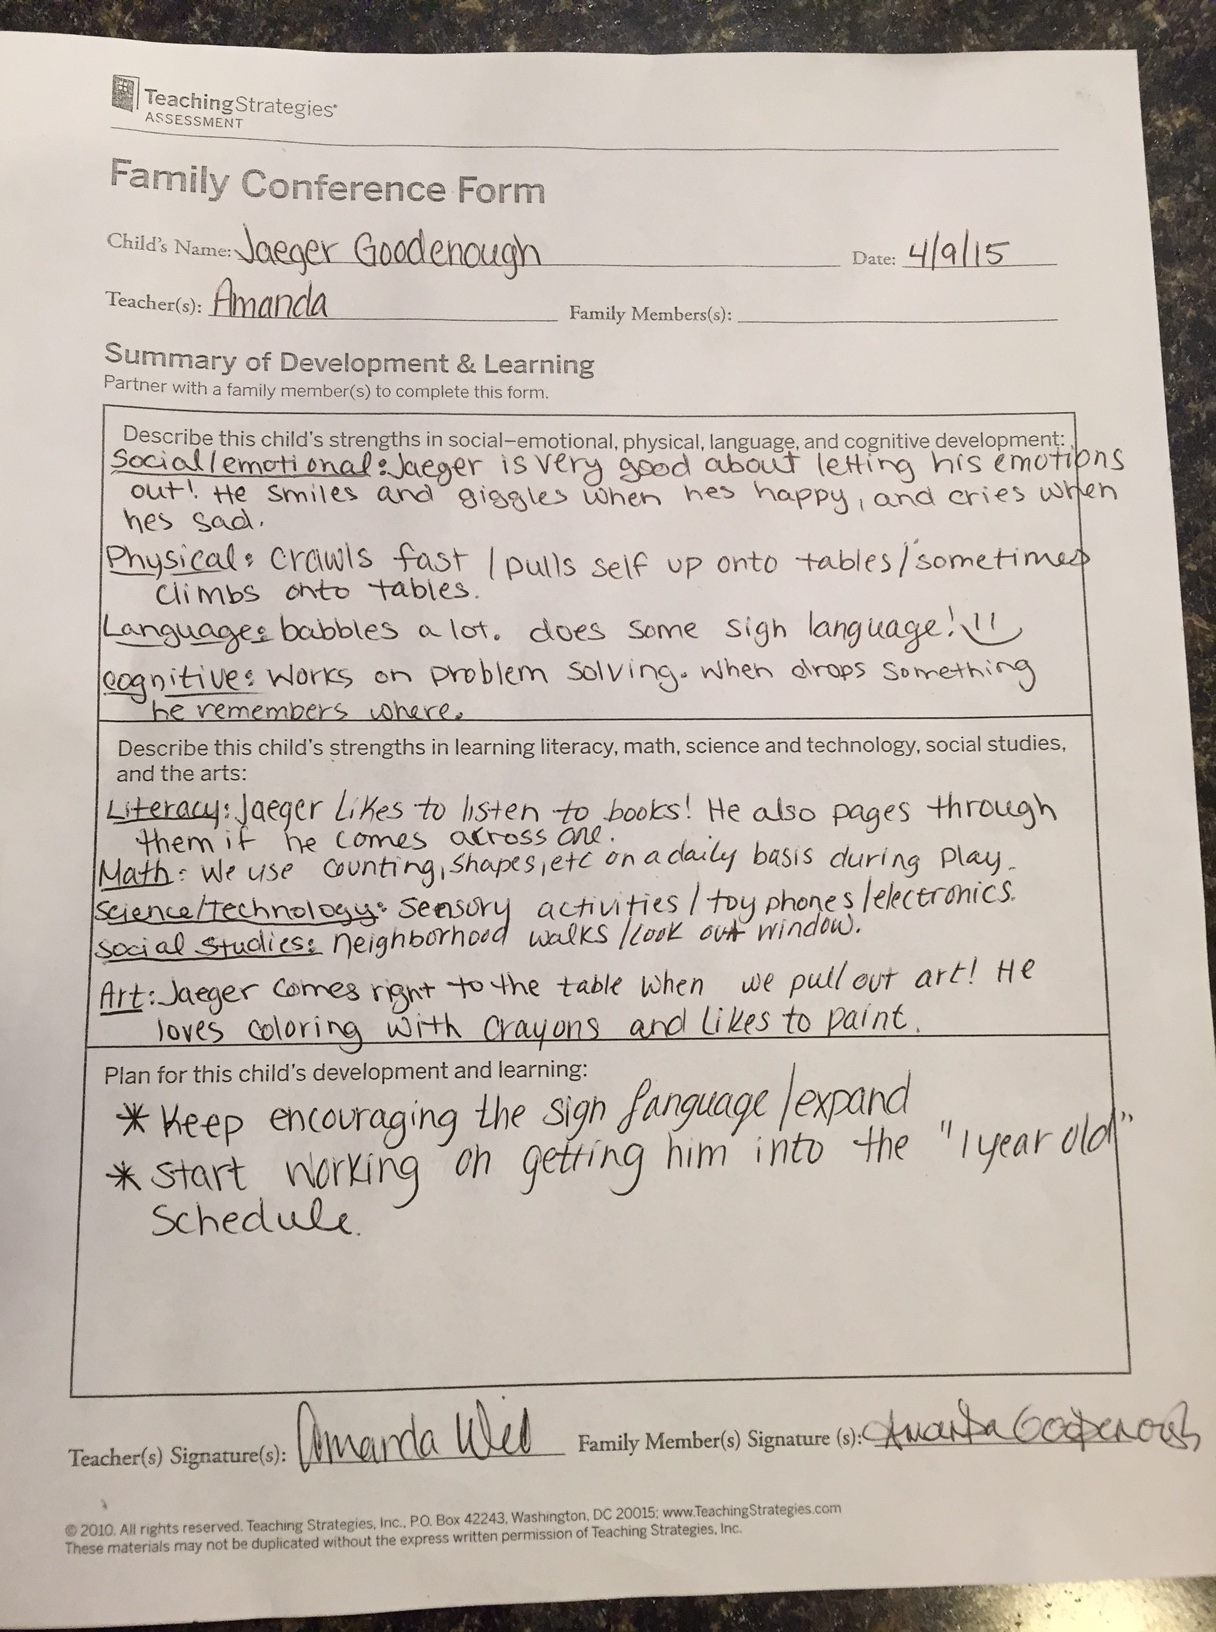 TeachingStrategies®
ASSESSMENT
Family Conference Form
Child's Name: Jaeger Goodenough Date: 4/9/15
Teacher(s): Amanda Family Members(s):
Summary of Development & Learning
Partner with a family member(s) to complete this form.
Describe this child's strengths in social–emotional, physical, language, and cognitive development:
Social/emotional: Jaeger is very good about letting his emotions
out! He smiles and giggles when hes happy, and cries when
hes sad.
Physical: crawls fast / pulls self up onto tables/sometimes
climbs onto tables.
Language: babbles a lot. does some sign language!
cognitive: works on problem solving. when drops something
he remembers where.
Describe this child's strengths in learning literacy, math, science and technology, social studies,
and the arts:
Literacy: Jaeger likes to listen to books! He also pages through
them if he comes across one.
Math: we use counting, shapes, etc on a daily basis during play.
Science/technology: sensory activities / toy phones/electronics.
Social studies: neighborhood walks /look out window.
Art: Jaeger comes right to the table when we pull out art! He
loves coloring with crayons and likes to paint.
Plan for this child's development and learning:
* Keep encouraging the sign language/expand
* Start working on getting him into the "1 year old"
schedule.
Teacher(s) Signature(s): Amanda Family Member(s) Signature (s): Amanda Goodenough
© 2010. All rights reserved. Teaching Strategies, Inc., P.O. Box 42243, Washington, DC 20015; www.TeachingStrategies.com
These materials may not be duplicated without the express written permission of Teaching Strategies, Inc.